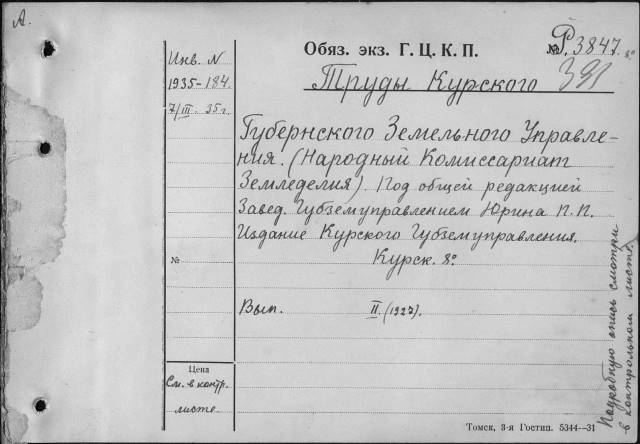 А.
Инв. N
1935-184
7/III. 35г.
Обяз. экз. Г. Ц. К. П.
№ Р. 3847. 8°
391
Труды Курского
Губернского Земельного Управле-
ния. (Народный Комиссариат
Земледелия). Под общей редакцией
Завед. Губземуправлением Юрина П. П.
Издание Курского Губземуправления.
Курск. 8°
№
Вып. II. (1927).
Цена
См. в контр.
листе.
Подробную опись смотри
в контрольном листе.
Томск, 3-я Гостип. 5344—31